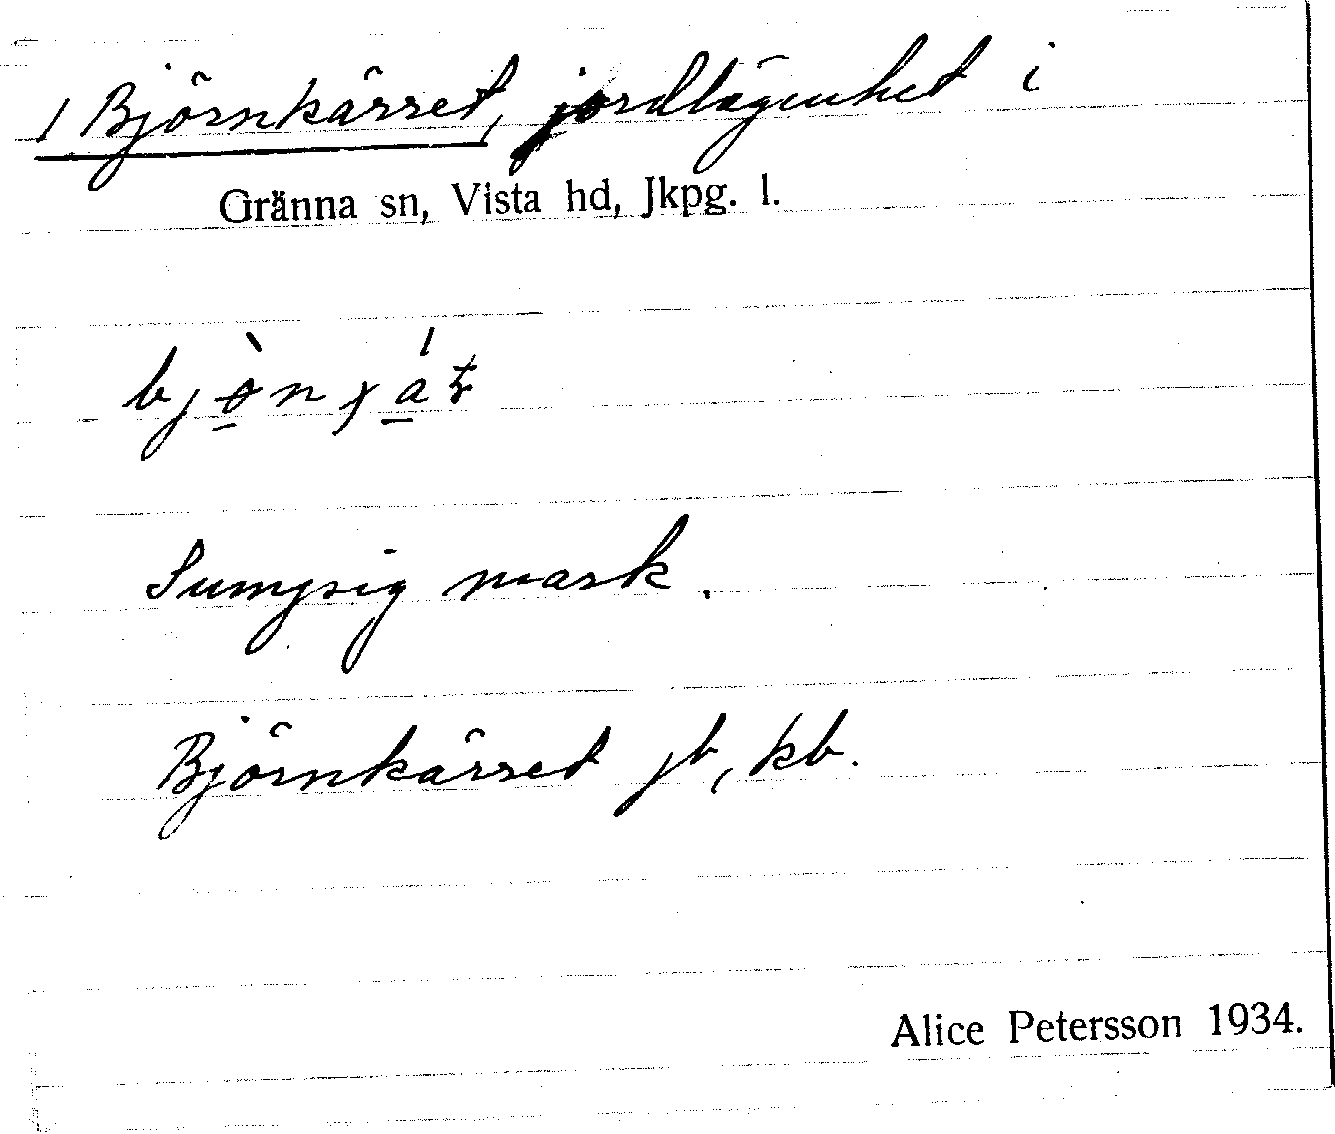 1 Björnkärret, jordlägenhet i
Gränna sn, Vista hd, Jkpg. l.
Sumpsig mark.
Björnkärret jb, kb.
Alice Petersson 1934.